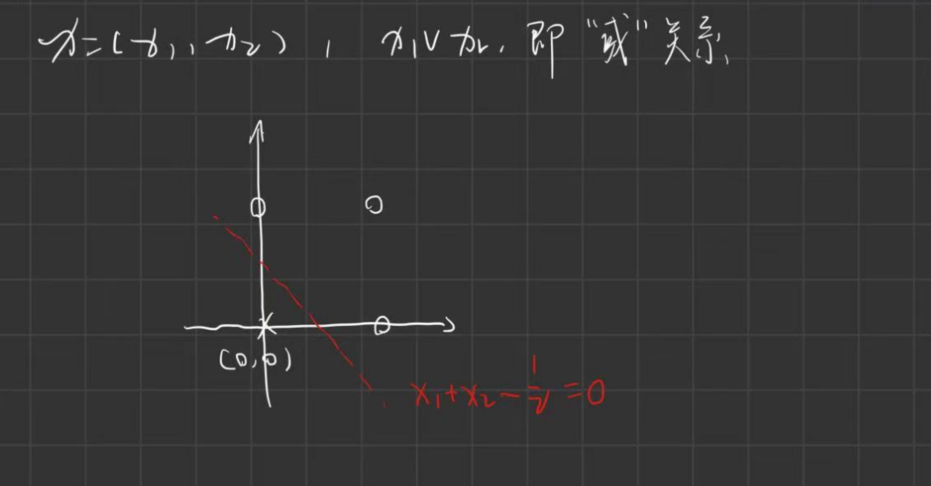 x=(x₁,x₂), x₁∨x₂, 即“或”关系,
(0,0)
x₁+x₂-1/2=0